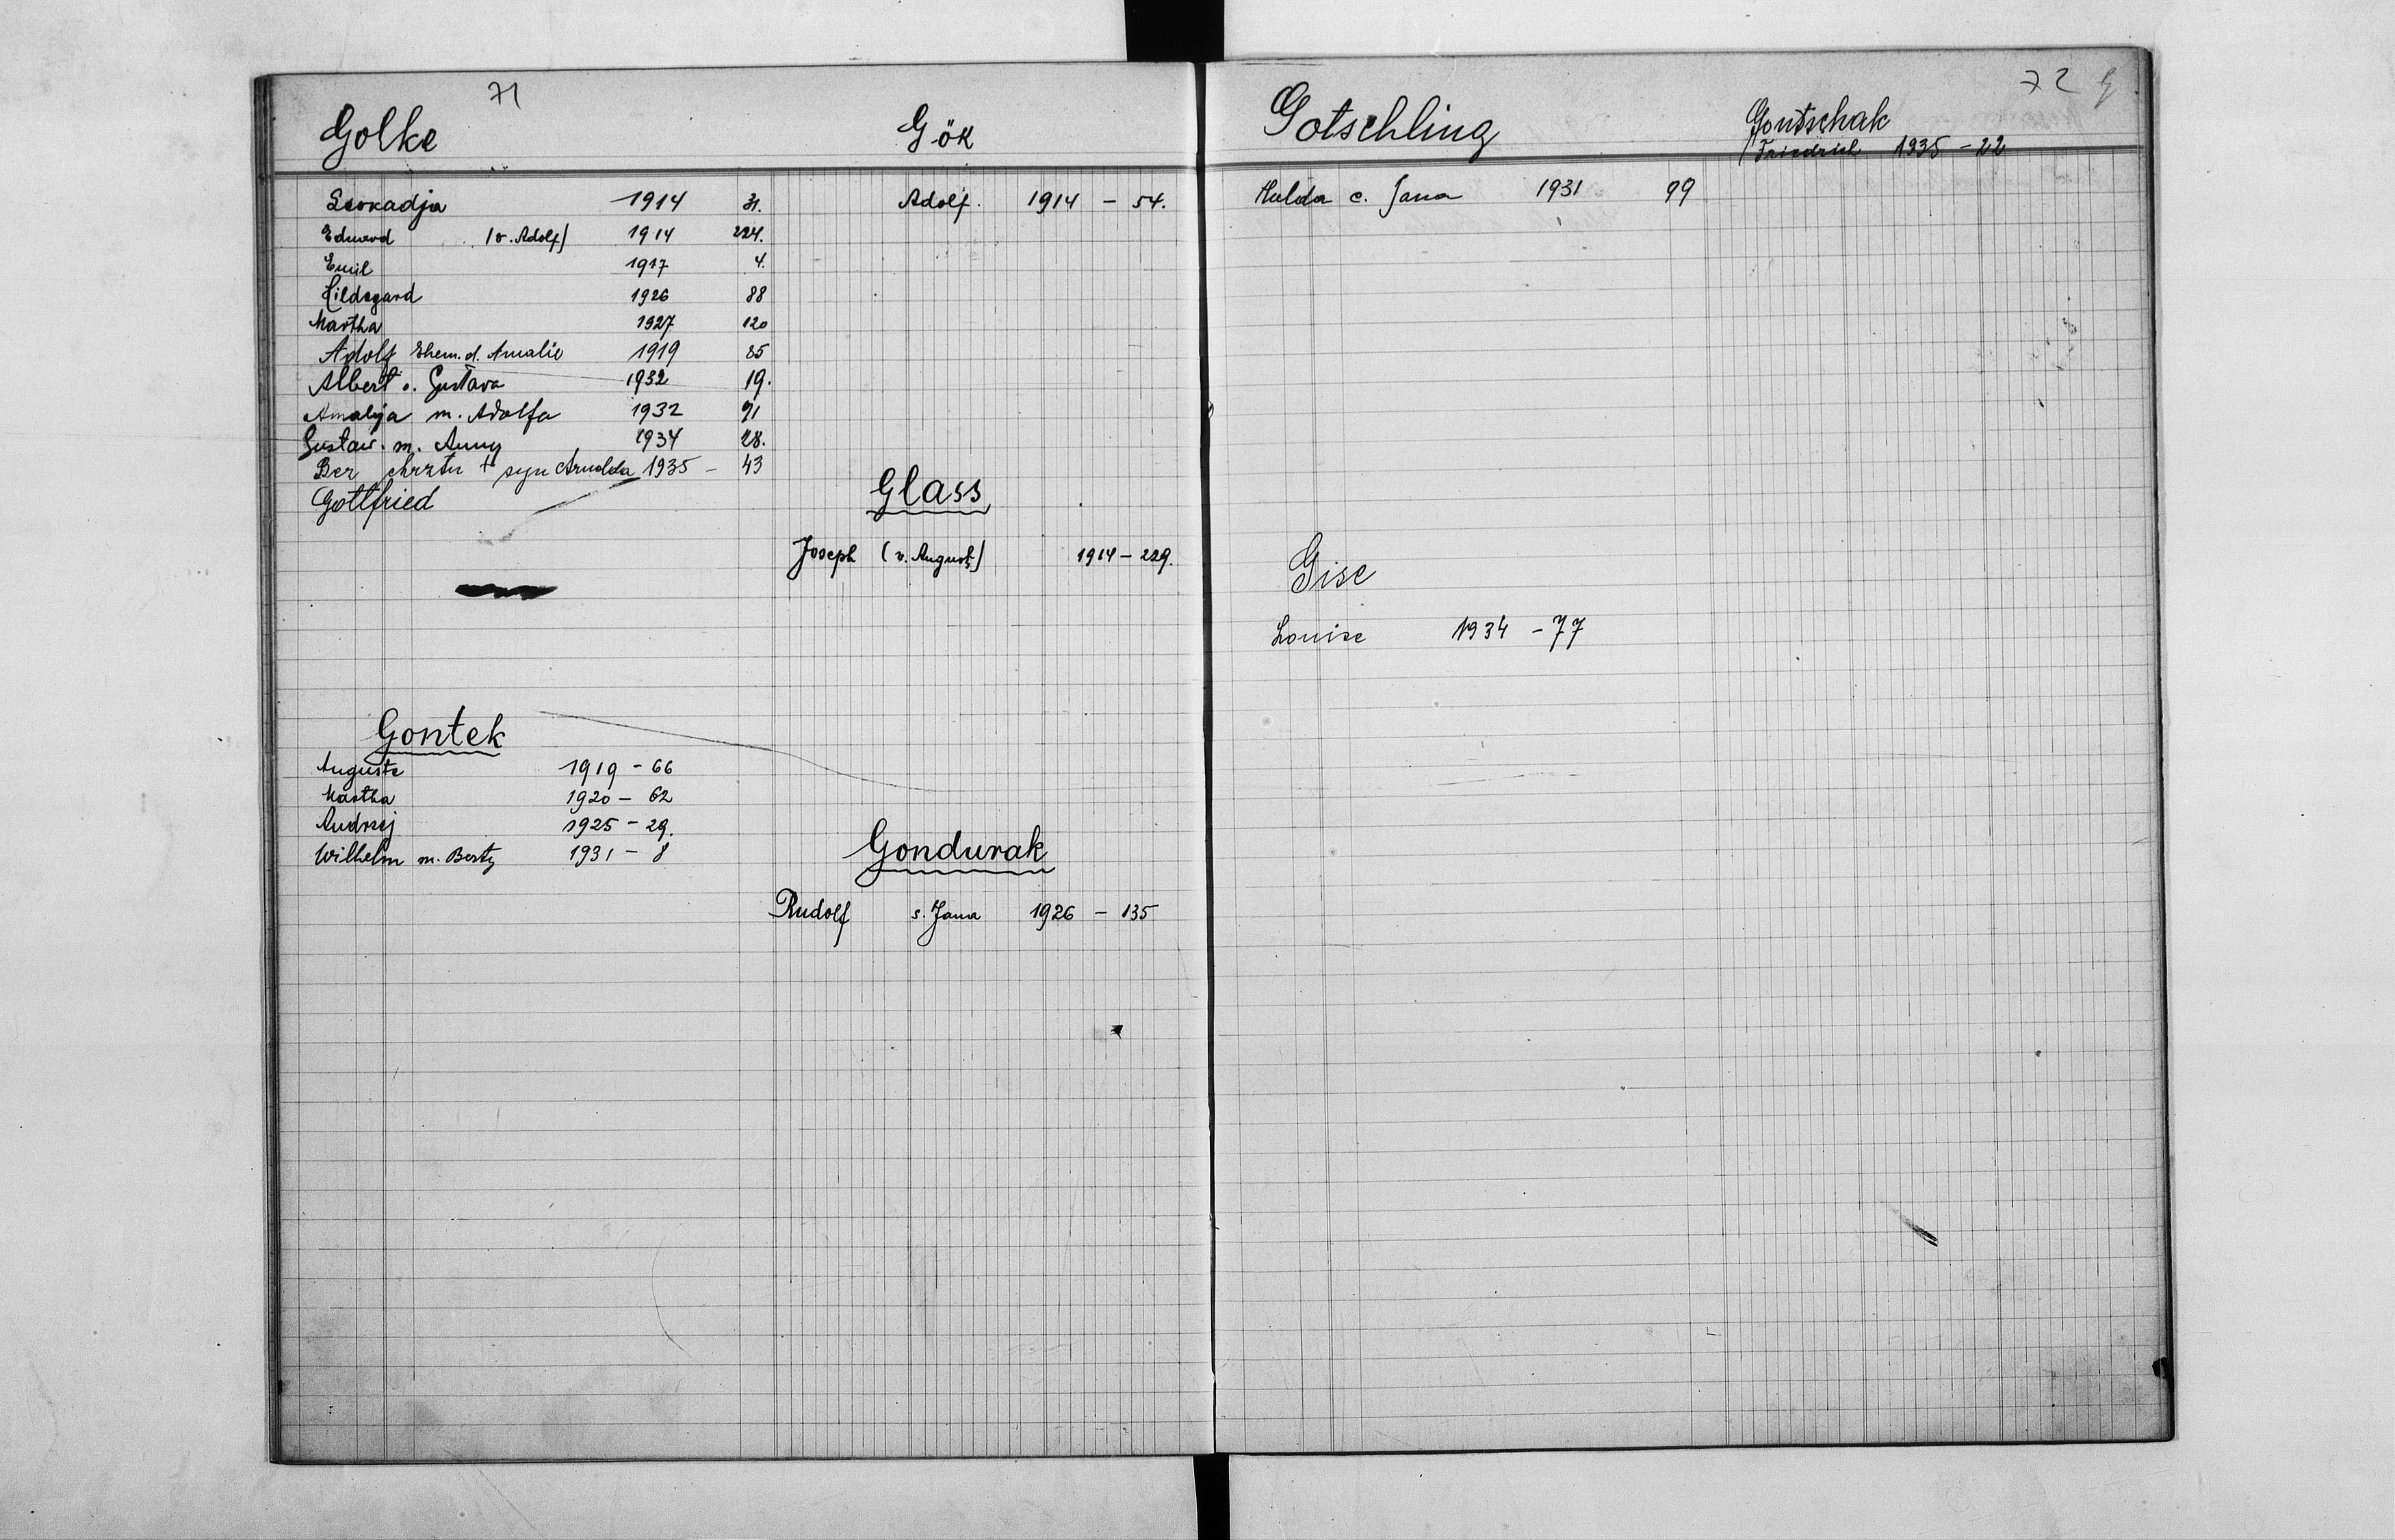 71
Golke
Leokadja 1914 31.
Eduard (v. Adolf) 1914 224.
Emil 1917 4.
Hildegard 1926 88
Martha 1927 120
Adolf Ehem. d. Amalie 1919 85
Albert s. Gustava 1932 19.
Amalja m. Adolfa 1932 71
Gustaw. m. Anny 1934 28.
Bez chrztu † syn Arnolda 1935 - 43
Gottfried
Gontek
Auguste 1919 - 66
Martha 1920 - 62
Andrzej 1925 - 29.
Wilhelm m. Berty 1931 - 8
Gök
Adolf. 1914 - 54.
Glass
Joseph (v. August) 1914 - 229.
Gondurak
Rudolf s. Jana 1926 - 135
72 G
Gotschling
Hulda c. Jana 1931 99
Gise
Louise 1934 - 77
Gontschak
Friedrich 1935 - 22